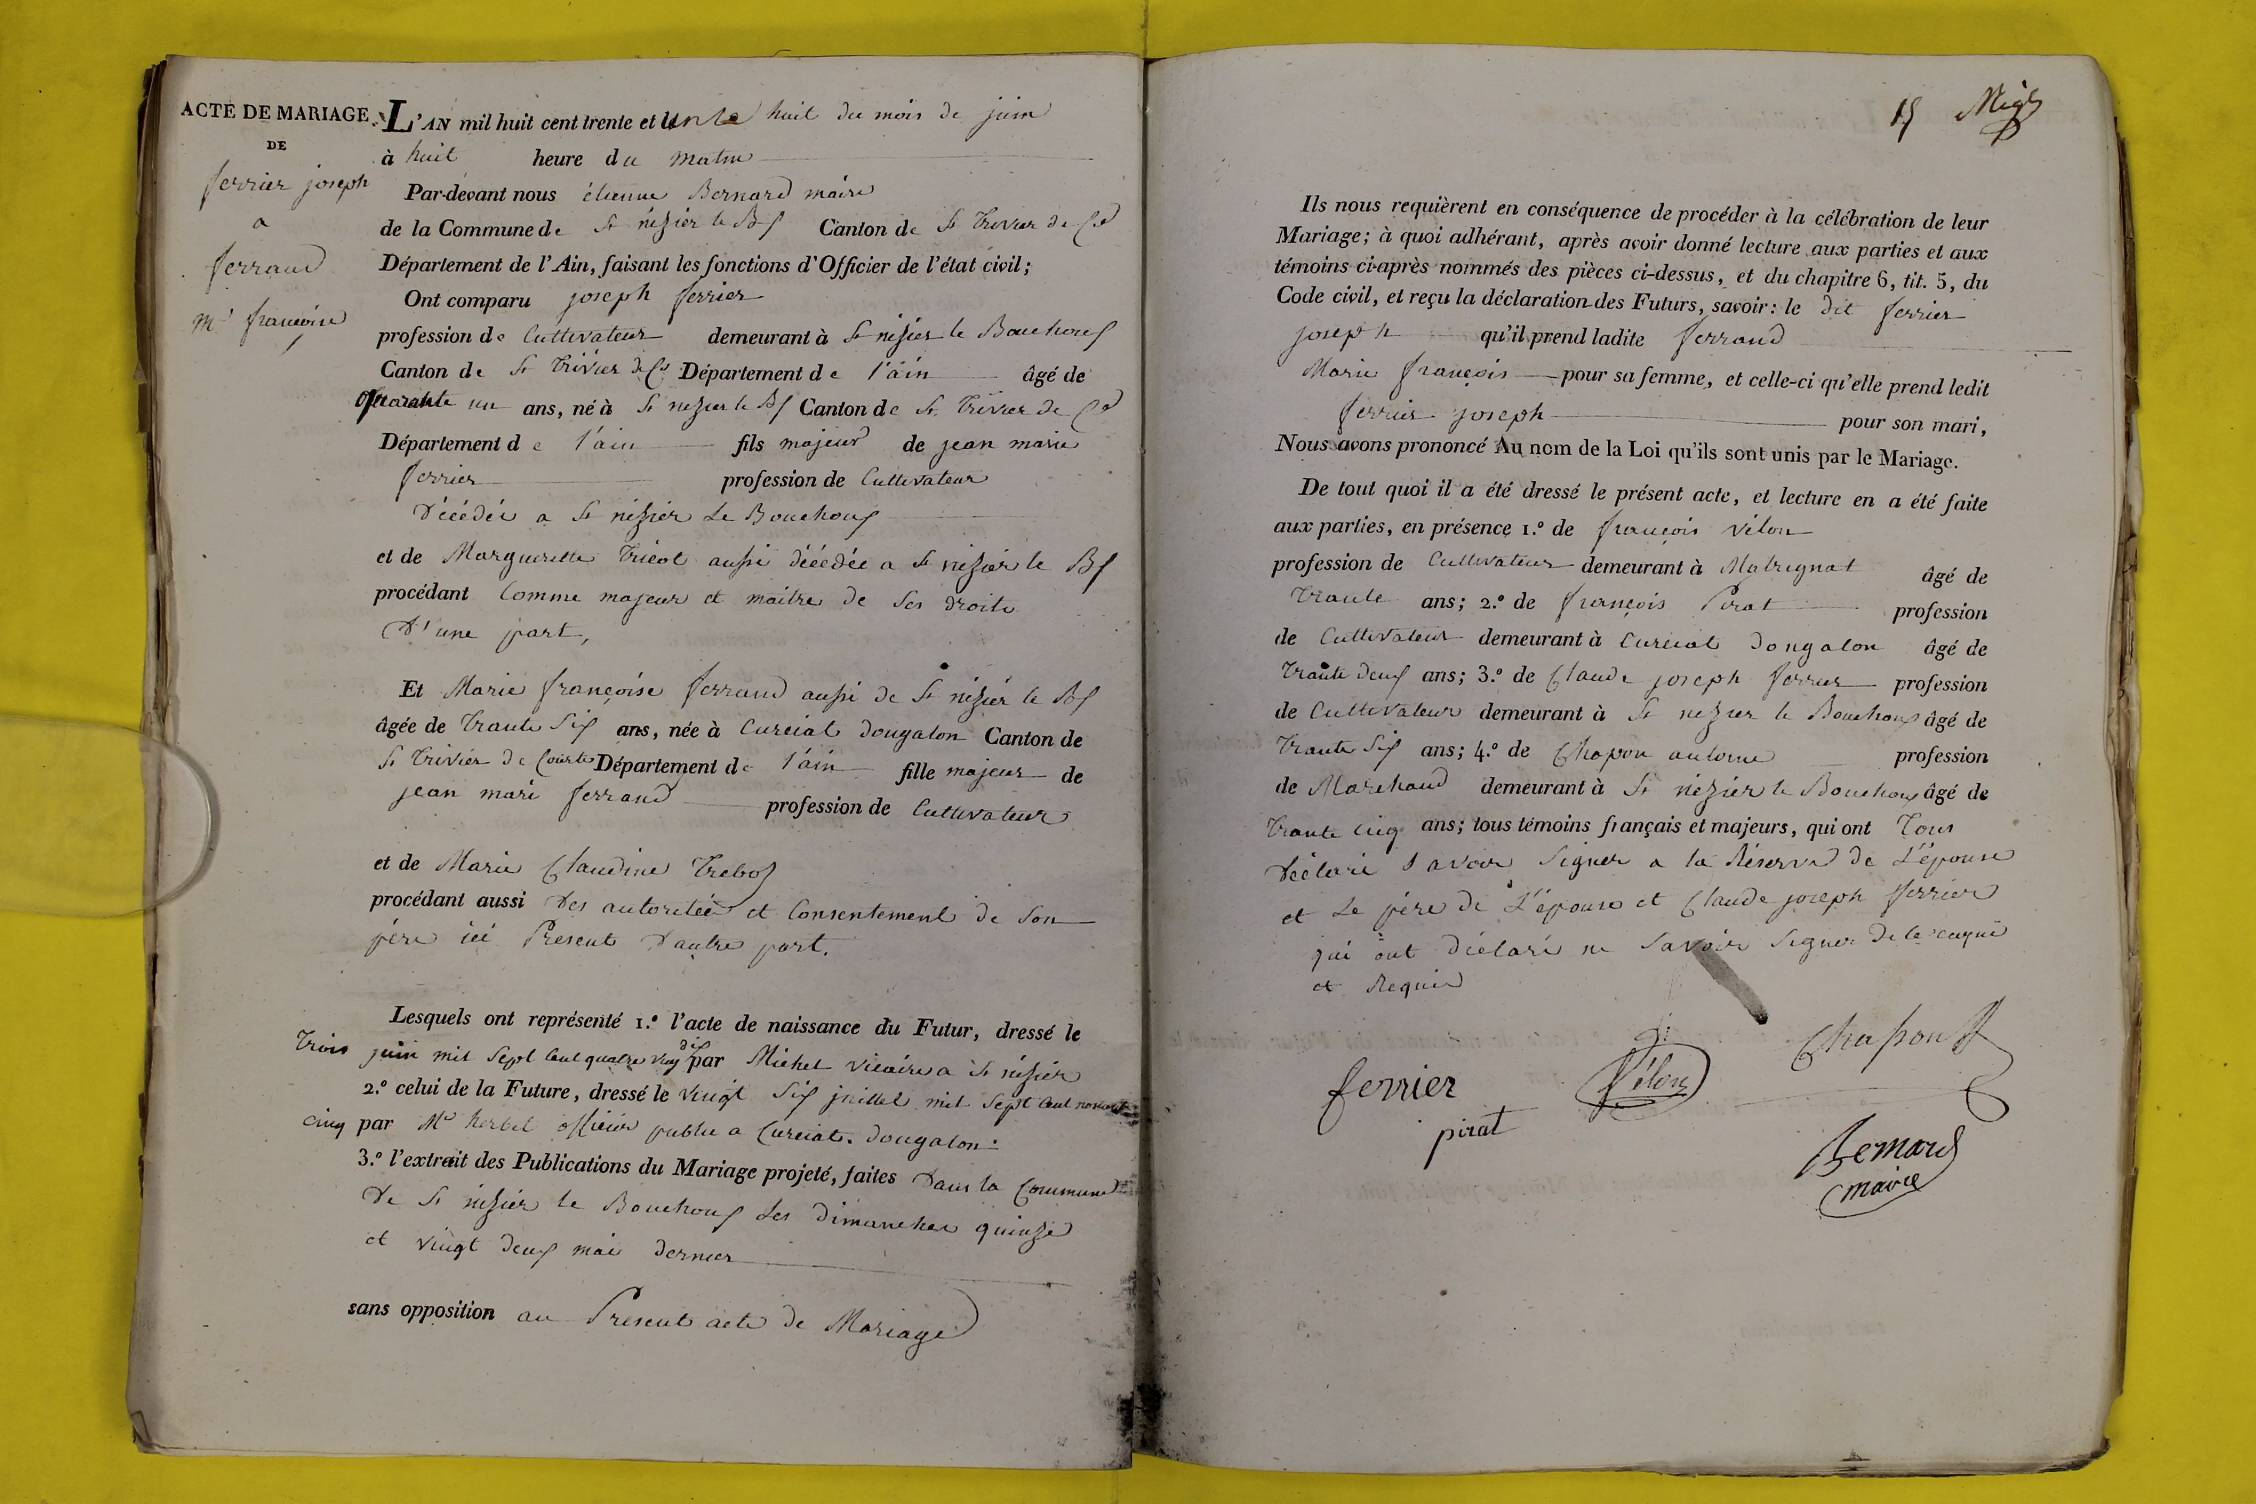 ACTE DE MARIAGE
DE
ferrier joseph
a
ferrand
Me françoise
L'AN mil huit cent trente et un le huit du mois de juin
à huit heure du matin
Par-devant nous étienne Bernard maire
de la Commune de St nizier le Bx Canton de St Trivier de Cs
Département de l'Ain, faisant les fonctions d'Officier de l'état civil;
Ont comparu joseph ferrier
profession de Cultivateur demeurant à St nizier le Bouchoux
Canton de St Trivier de Cs Département de l'ain âgé de
quarante un ans, né à St nizier le Bx Canton de St Trivier de Cs
Département de l'ain fils majeur de jean marie
ferrier profession de Cultivateur
Décédée a St nizier Le Bouchoux
et de Marguerite Tricot aussi décédée a St nizier le Bx
procédant Comme majeur et maitre de ses droits
D'une part,
Et Marie françoise ferrand aussi de St nizier le Bx
âgée de Trante Six ans, née à Curciat dongalon Canton de
St Trivier de Courte Département de l'ain fille majeur de
jean marie ferrand profession de Cultivateur
et de Marie Claudine Treboz
procédant aussi Des autoritée et Consentement de Son
père ici Present D'autre part.
Lesquels ont représenté 1.º l'acte de naissance du Futur, dressé le
Trois juin mil sept Cent quatre ving dix par Michel vicaire a St nizier
2.º celui de la Future, dressé le vingt Six juillet mil Sept Cent nonante
cinq par Mr herbet officier public a Curciat. dongalon.
3.º l'extrait des Publications du Mariage projeté, faites Dans la Commune
De St nizier le Bouchoux Les dimanches quinze
et vingt deux mai dernier
sans opposition au Present acte de Mariage
15
Ils nous requièrent en conséquence de procéder à la célébration de leur
Mariage; à quoi adhérant, après avoir donné lecture aux parties et aux
témoins ci-après nommés des pièces ci-dessus, et du chapitre 6, tit. 5, du
Code civil, et reçu la déclaration des Futurs, savoir: le dit ferrier
joseph qu'il prend ladite ferrand
Marie françois pour sa femme, et celle-ci qu'elle prend ledit
ferrier joseph pour son mari,
Nous avons prononcé Au nom de la Loi qu'ils sont unis par le Mariage.
De tout quoi il a été dressé le présent acte, et lecture en a été faite
aux parties, en présence 1.º de françois vélon
profession de Cultivateur demeurant à Malregnat âgé de
Trante ans; 2.º de françois Pirat profession
de Cultivateur demeurant à Curciat dongalon âgé de
Trante deux ans; 3.º de Claude joseph ferrier profession
de Cultivateur demeurant à St nezier le Bouchoux âgé de
Trante Six ans; 4.º de Chapon antoine profession
de Marchand demeurant à St nizier le Bouchoux âgé de
Trante cinq ans; tous témoins français et majeurs, qui ont Tous
Déclaré Savoir Signer a la Réserve de L'épouse
et Le père de L'épouse et Claude joseph ferrier
qui ont Déclaré ne Savoir Signer de ce enquis
et Requis
ferrier
pirat
Vélon
Chapon
Bernard
maire